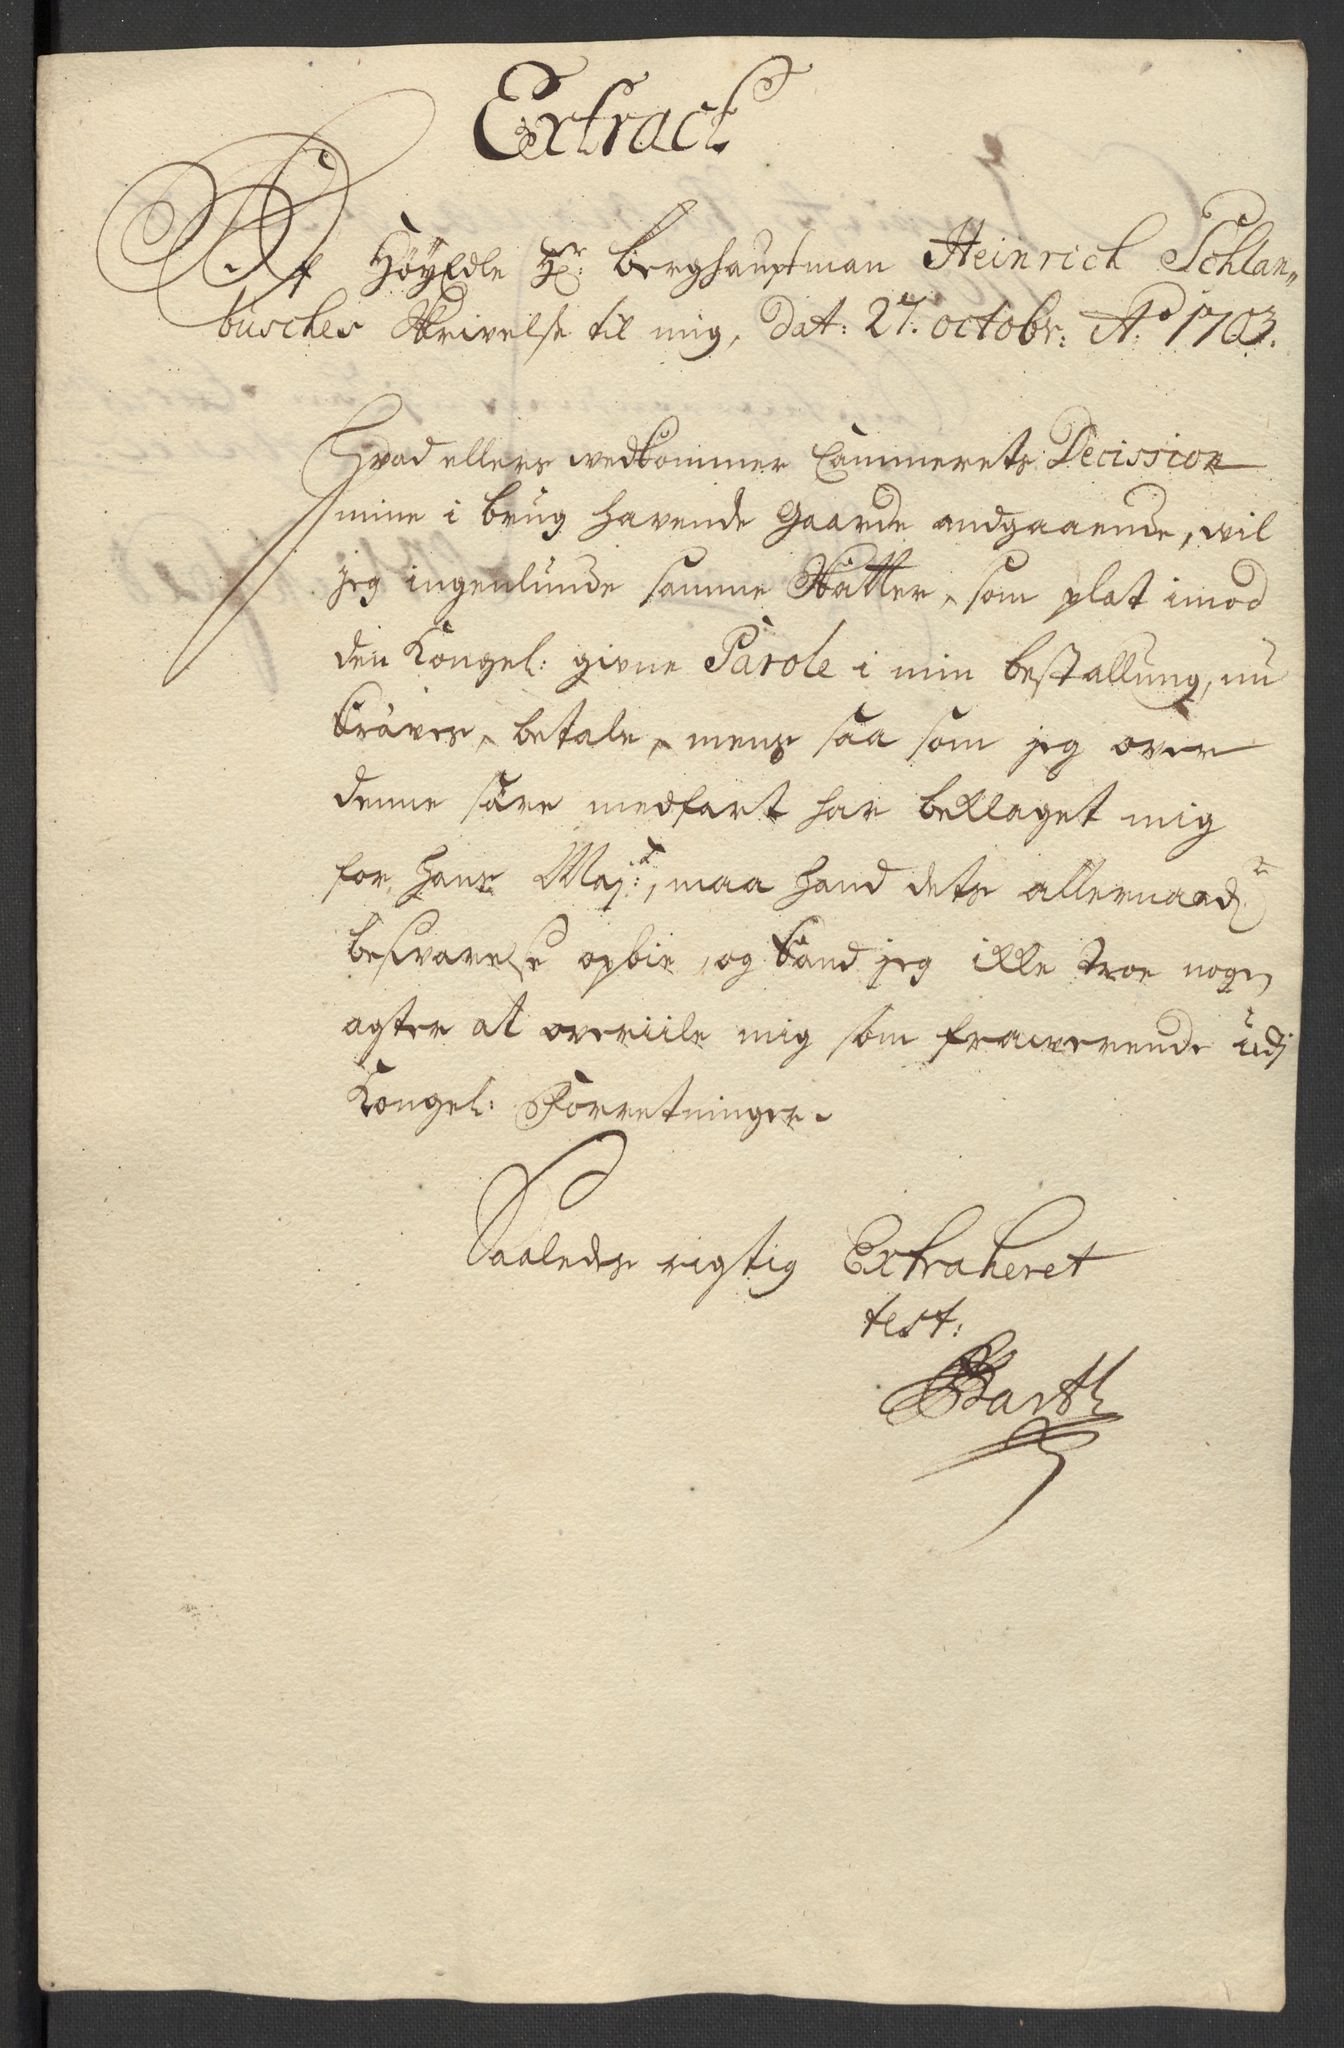 Extract
Af HöyEdle Hr: berghauptman Heinrich Schlan„
busches Skrivelse til mig, Dat: 27. octobr: Ao 1703.
Hvad ellers wedkommer Cammerets Decission
mine i brug havende Gaarde andgaaende, wil
jeg ingenlunde samme Skatter, som plat imod
den Kongel: givne Parole i min bestallung, nu
kräves, betale, mens saa som jeg over
denne säre medfart har beklaget mig
for Hans Majt:, maa hand dets allernaadr
besvarelse opbie, og kand jeg ikke troe nogen
agter at overiile mig som frawerende udj
Kongel: Forretninger.
Saaledes rigtig Extraheret
test:
Barth